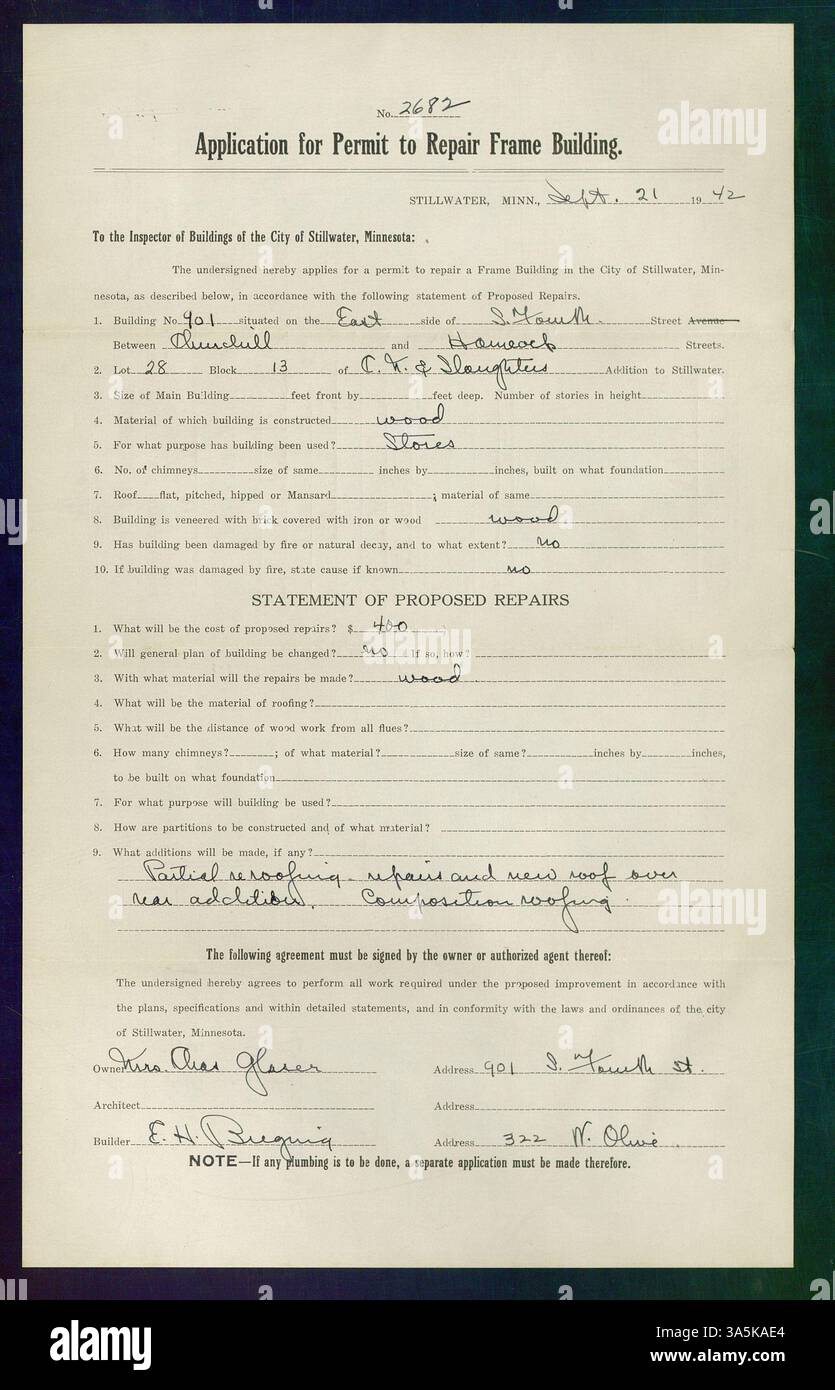 No. 2682
Application for Permit to Repair Frame Building.
STILLWATER, MINN., Sept. 21 1942
To the Inspector of Buildings of the City of Stillwater, Minnesota:
The undersigned hereby applies for a permit to repair a Frame Building in the City of Stillwater, Min-
nesota, as described below, in accordance with the following statement of Proposed Repairs.
1. Building No. 901 situated on the East side of S. Fourth Street Avenue
Between Churchill and Hancock Streets.
2. Lot 28 Block 13 of C. N. & Slaughters Addition to Stillwater.
3. Size of Main Building feet front by feet deep. Number of stories in height
4. Material of which building is constructed wood
5. For what purpose has building been used? Stores
6. No. of chimneys size of same inches by inches, built on what foundation
7. Roof flat, pitched, hipped or Mansard ; material of same
8. Building is veneered with brick covered with iron or wood wood
9. Has building been damaged by fire or natural decay, and to what extent? no
10. If building was damaged by fire, state cause if known no
STATEMENT OF PROPOSED REPAIRS
1. What will be the cost of proposed repairs? $ 400
2. Will general plan of building be changed? no If so, how?
3. With what material will the repairs be made? wood
4. What will be the material of roofing?
5. What will be the distance of wood work from all flues?
6. How many chimneys? ; of what material? size of same? inches by inches,
to be built on what foundation
7. For what purpose will building be used?
8. How are partitions to be constructed and of what material?
9. What additions will be made, if any?
Partial reroofing - repairs and new roof over
rear addition. Composition roofing.
The following agreement must be signed by the owner or authorized agent thereof:
The undersigned hereby agrees to perform all work required under the proposed improvement in accordance with
the plans, specifications and within detailed statements, and in conformity with the laws and ordinances of the city
of Stillwater, Minnesota.
Owner Mrs. Chas Glaser Address 901 S. Fourth St.
Architect Address
Builder E. H. Address 322 W. Olive
NOTE—If any plumbing is to be done, a separate application must be made therefore.
alamy
Image ID: 3A5KAE4
www.alamy.com